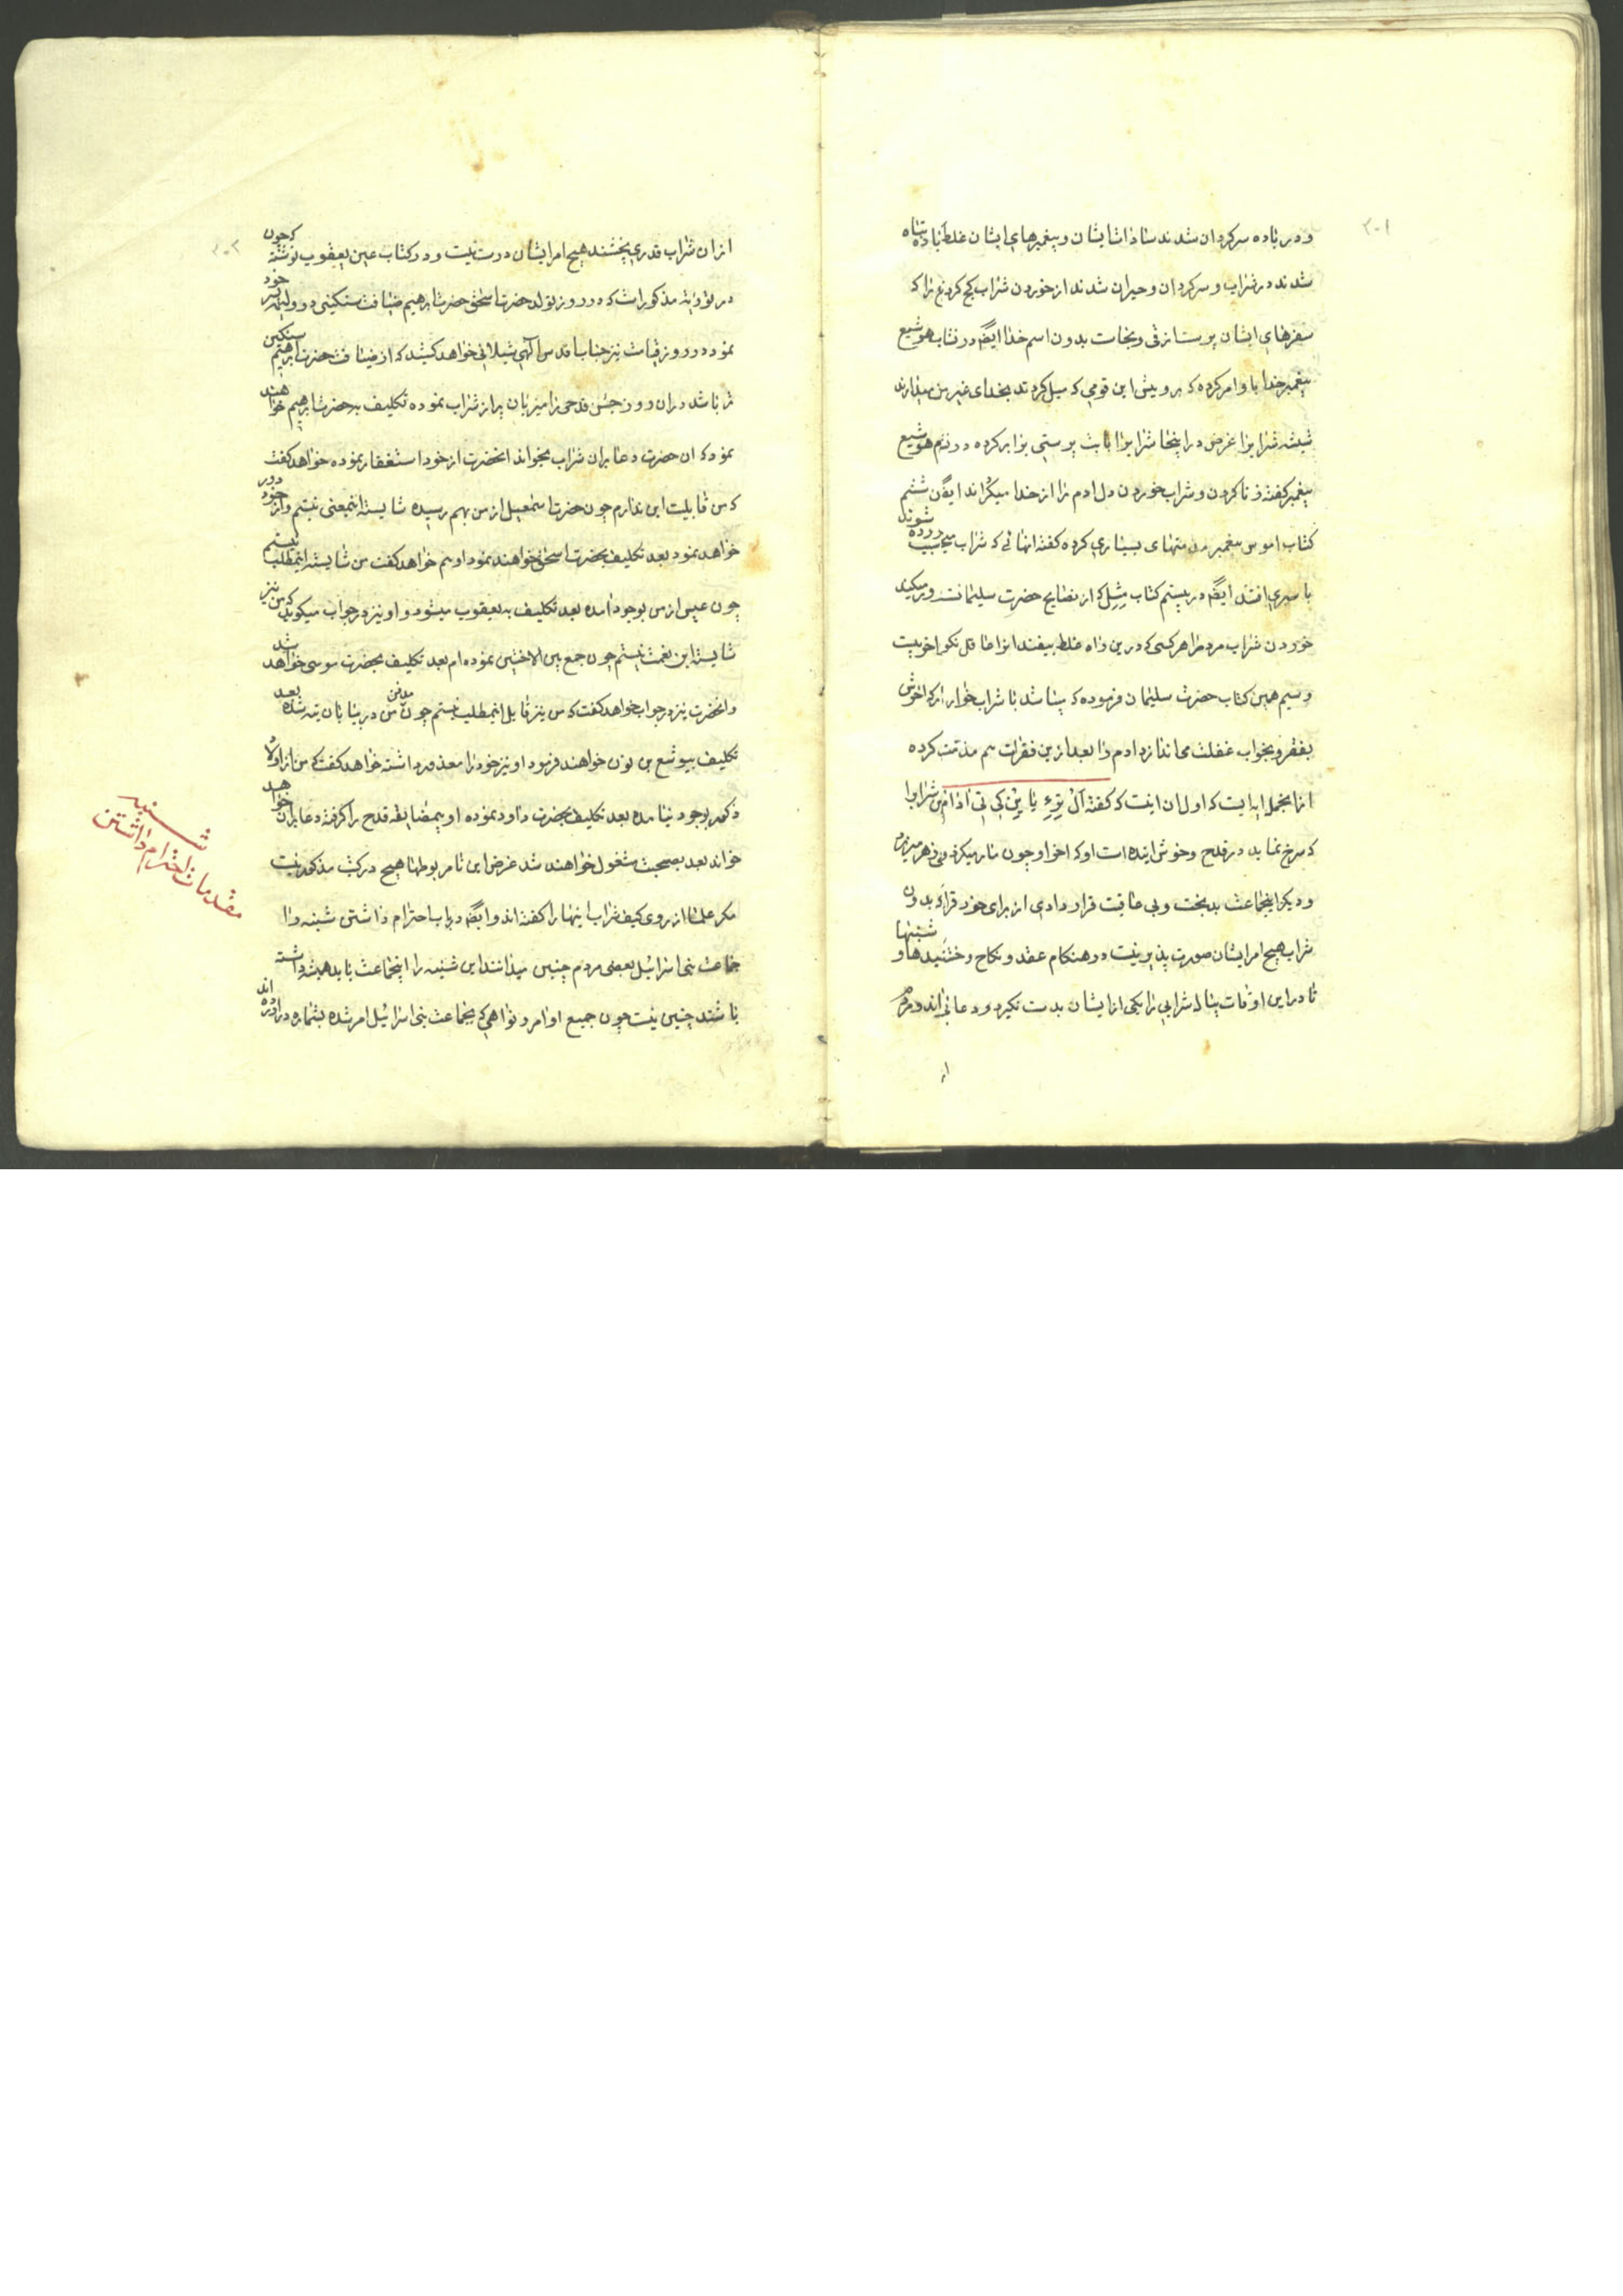 ۲۰۱
و در باده سرکردان شدند سادات ایشان و پیغمبرهای ایشان غلط باده تباه
شدند در شراب و سرکردان و حیران شدند از خوردن شراب کج کردند زیرا که
سفرهای ایشان پرست از قی و نجاست بدون اسم خدا ایضا در کتاب هوشیع
پیغمبر خدا باو امر کرده که برو پیش این قومی که میل کردند بخدای غیر من میدارند
شیشه شرابرا غرض در اینجا شرابرا با بت پرستی برابر کرده در نهم هوشیع
پیغمبر گفته زنا کردن و شراب خوردن دل ادم را از خدا میکرداند ایضا در ششم
کتاب اموس پیغمبر مذمتهای بسیاری کرده گفته انهائی که شراب میخورده شوند
با سیری افتند ایضا در بیستم کتاب مثل که از نصایح حضرت سلیمانست و میکوید
خوردن شراب مرد مرا هر کسی که درین راه غلط بیفتد انرا عاقل نکو اخر نیست
و سیم همین کتاب حضرت سلیمان فرموده که مباشد با شراب خوار زیرا که اخرش
بفقر و بخواب غفلت می اندازد ادم را بعد ازین فقرات هم مذمت کرده
اما مجمل ایه ایست که اول ان اینست که گفته ال ترء یاین کی یتادام بین شرابرا
که سرخ نماید در قدح و خوش اینده است او که اخر او چون مار میکزد و زهر میریزد
و دیکر اینجماعت بدبخت و بی عاقبت قرار دادی از برای خود قرار داده بدون
شراب هیچ امر ایشان صورت پذیر نیست در هنکام عقد و نکاح و ختنیدها و شنبها
تا در این اوقات پیاله شرابی را یکی از ایشان بدست نکیرد و دعا نخواند و مردم
از
۲۰۲
از ان شراب قدری نچشند هیچ امر ایشان درست نیست و در کتاب عین یعقوب نوشته که چون
در توریة مذکور است که در روز تولد حضرت اسحق حضرت ابرهیم ضیافت سنکینی در ولیمه پسر خود
نموده در روز قیامت نیز جناب اقدس الهی شیلانی خواهد کشید که از ضیافت حضرت ابرهیم سنکین
تر باشد در ان روز جشن قدحی را میزبان پر از شراب نموده تکلیف به حضرت ابرهیم خواهند
نمود که ان حضرت دعا بران شراب بخواند انحضرت از خود استغفار نموده خواهد گفت
که من قابلیت این ندارم چون حضرت اسمعیل از من بهم رسیده شایسته اینمعنی نیستم و از خود دور
خواهد نمود بعد تکلیف بحضرت اسحق خواهند نمود او هم خواهد گفت من شایسته اینمطلب نیستم
چون عیص از من بوجود امده بعد تکلیف به یعقوب میشود و او نیز در جواب میکوید که من نیز
شایسته این نعمت نیستم چون جمع بین الاختین نموده ام بعد تکلیف بحضرت موسی خواهد شد
و انحضرت نیز در جواب خواهد گفت که من نیز قابل اینمطلب نیستم چون مدفن من در بیابان تیه شده بعد
تکلیف بیوشع بن نون خواهند فرمود او نیز خود را معذور داشته خواهد گفت که من از اولاد
ذکور بوجود نیامده بعد تکلیف بحضرت داود نموده او بیمضایقه قدح را گرفته دعا بران خواهد
خواند بعد بصحبت مشغول خواهند شد غرض این نامربوطها هیچ در کتب مذکور نیست
مکر علما از روی کیف شراب اینها را گفته اند و ایضا در باب احترام داشتن شنبه را
جماعت بنی اسرائیل بعضی مردم چنین میدانند این شنبه را اینجماعت باید همیشه داشته
باشند چنین نیست چون جمیع اوامر و نواهی که بجماعت بنی اسرائیل امر شده بشماره در اورده اند
مقدمات احترام داشتن
شنبه